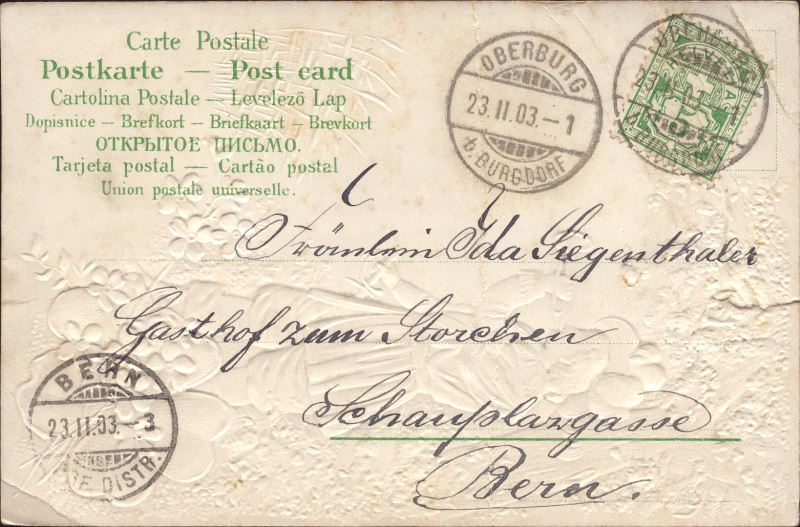 Carte Postale
Postkarte — Post card
Cartolina Postale — Levelező Lap
Dopisnice — Brefkort — Briefkaart — Brevkort
ОТКРЫТОЕ ПИСЬМО.
Tarjeta postal — Cartão postal
Union postale universelle.
OBERBURG
23.II.03.–1
b. BURGDORF
Fräulein Ida Siegenthaler
Gasthof zum Storchen
Schauplazgasse
Bern.
BERN
23.II.03.–3
DISTR.